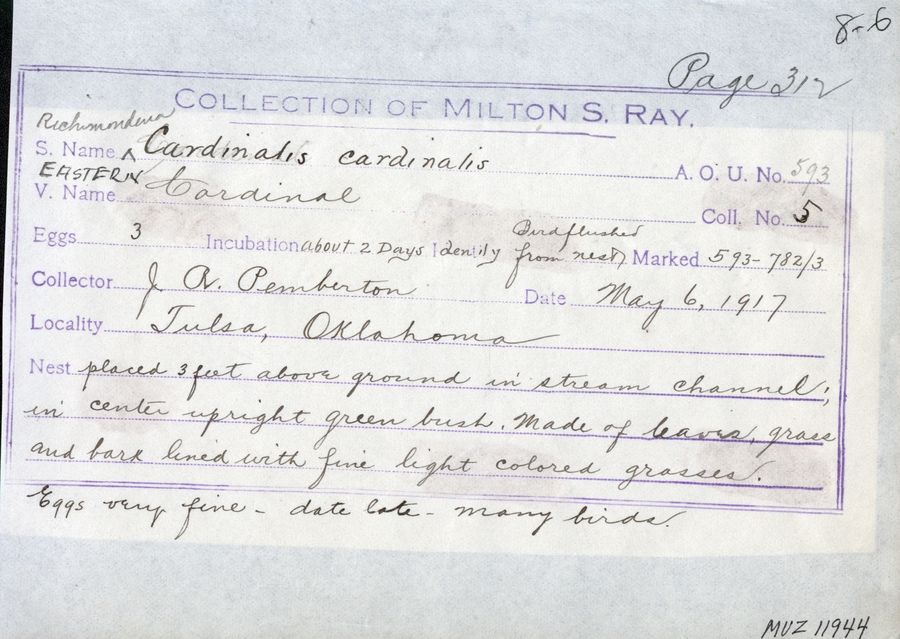 8-6
Page 312
COLLECTION OF MILTON S. RAY.
Richmondena
S. Name ^ Cardinalis cardinalis A. O. U. No. 593
EASTERN
V. Name Cardinal Coll. No. 5
Eggs 3 Incubation about 2 Days Identity Bird flushed from nest Marked 593-782/3
Collector J R. Pemberton Date May 6, 1917
Locality Tulsa, Oklahoma
Nest placed 3 feet above ground in stream channel;
in center upright green bush. Made of leaves, grass
and bark lined with fine light colored grasses.
Eggs very fine - date late - many birds.
MVZ 11944